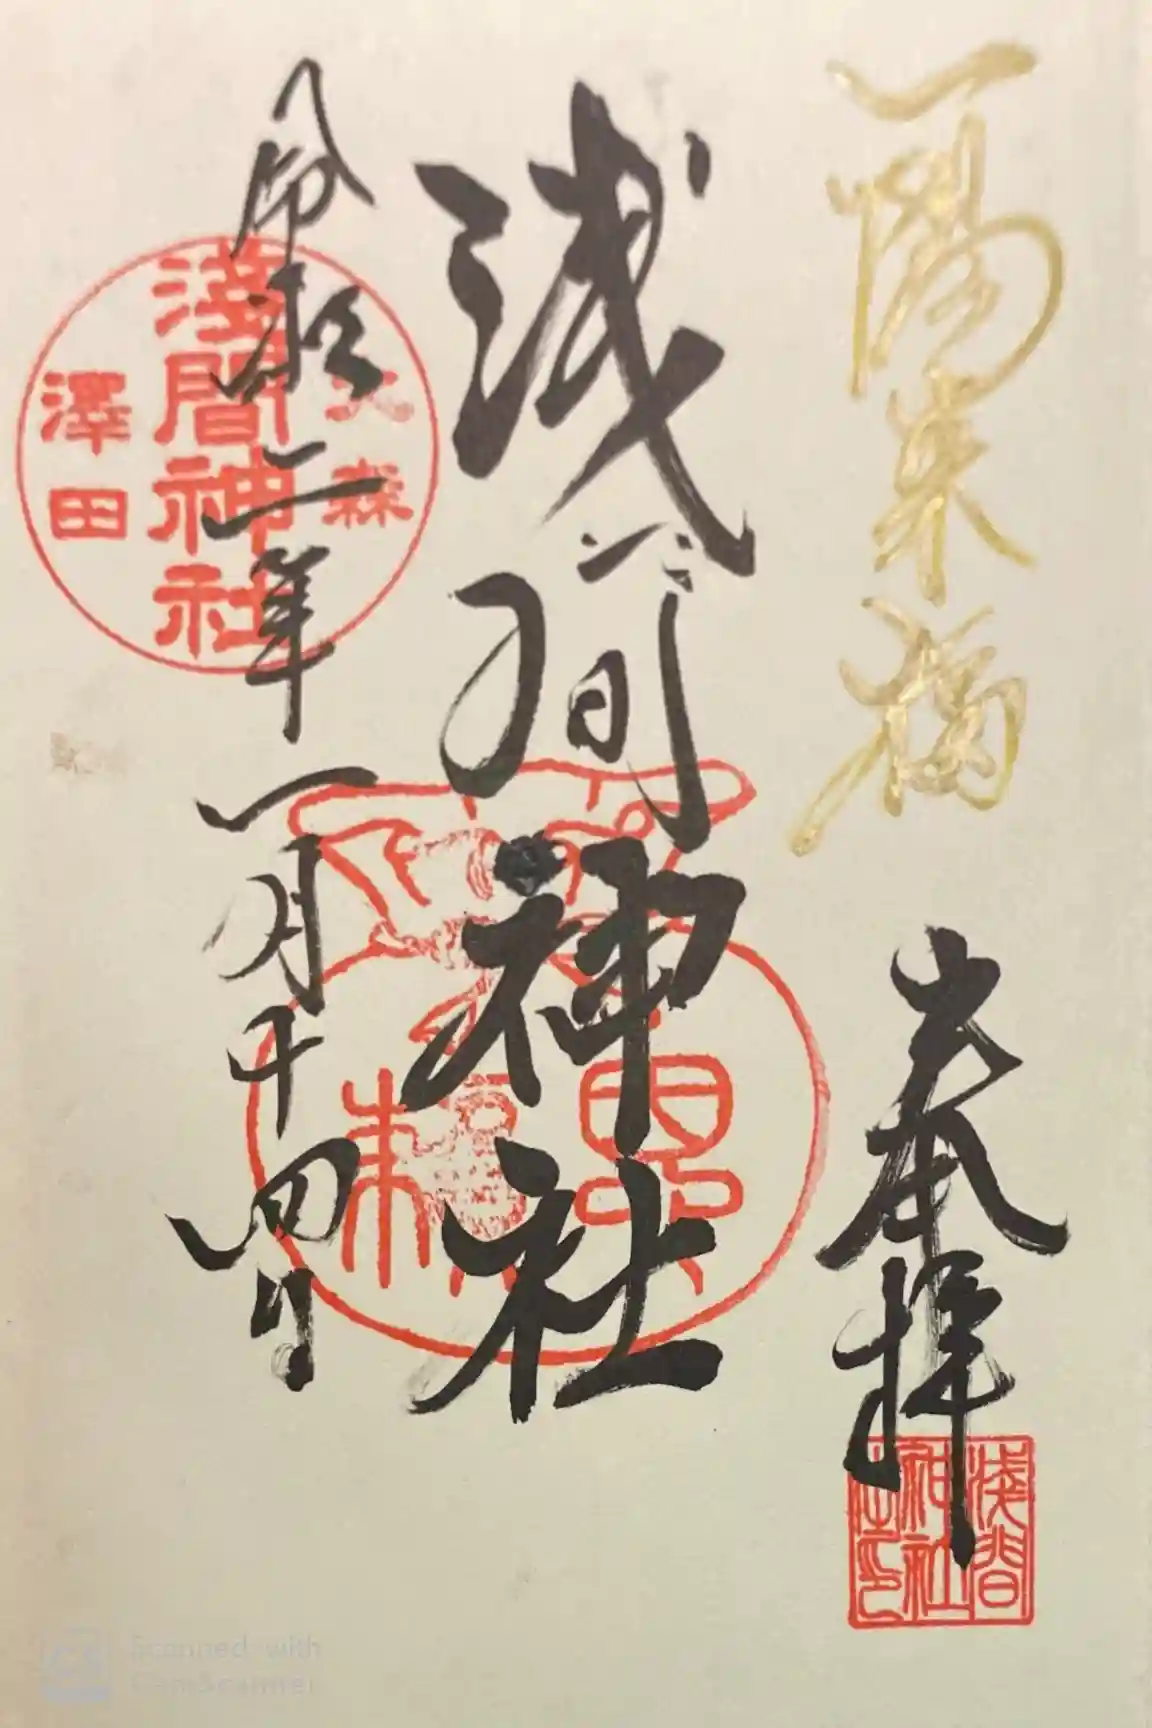 一陽来福
奉拝
浅間
神社
之印
浅間神社
令和二年
一月十四日
大森
浅間神社
澤田
Scanned with
CamScanner